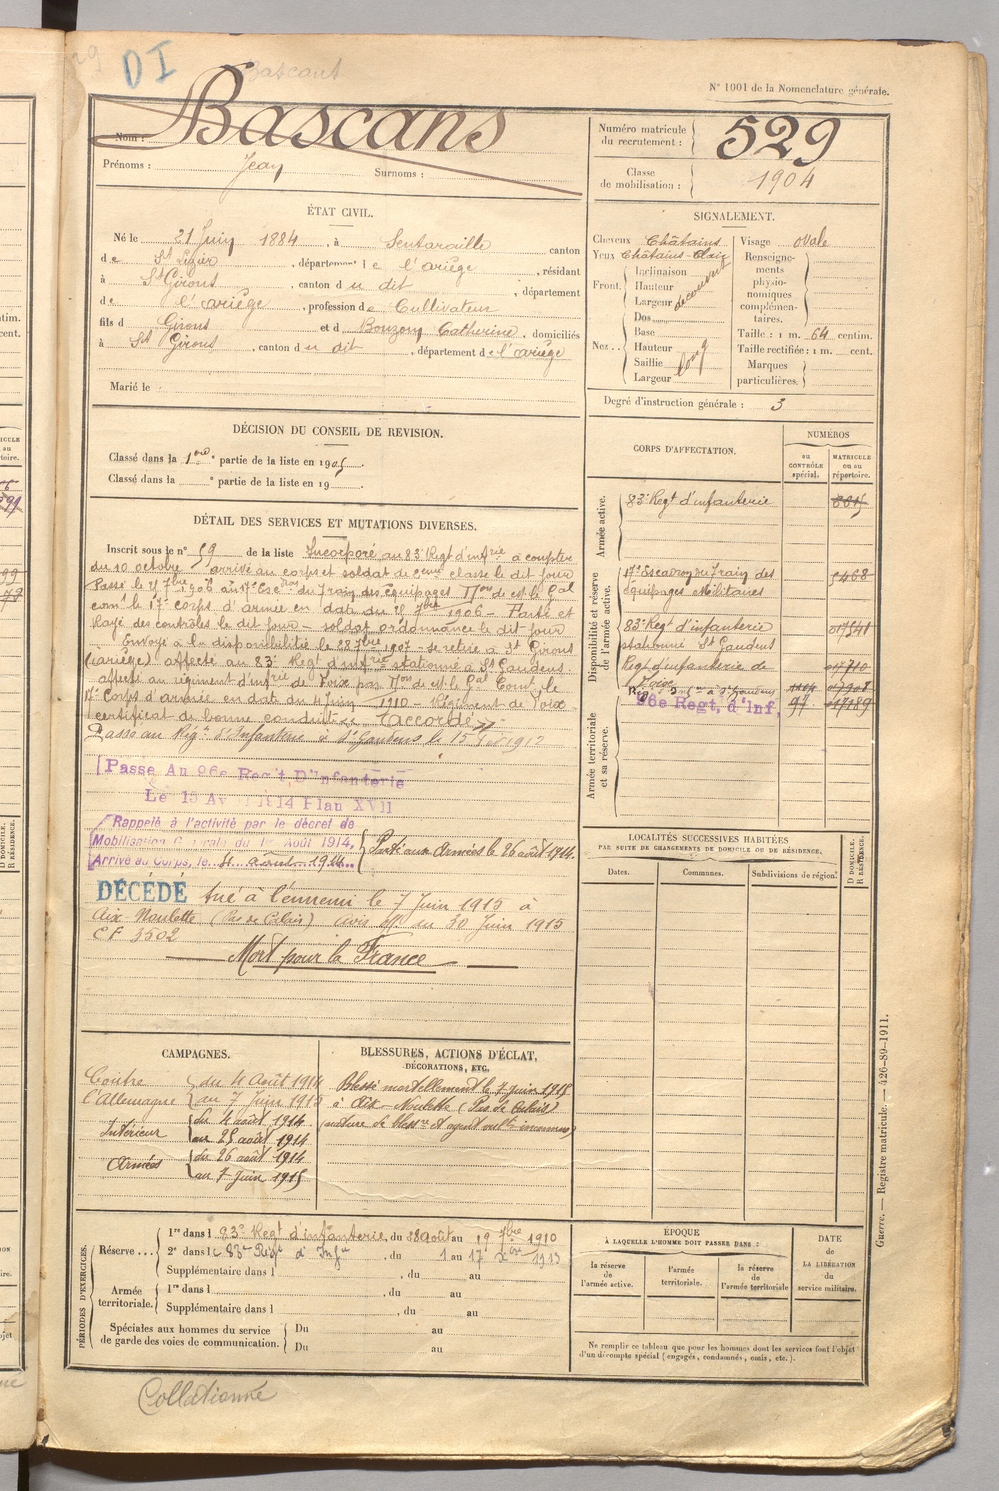 DI
Bascans
N° 1001 de la Nomenclature générale.
Nom : Bascans
Prénoms : Jean Surnoms :
Numéro matricule du recrutement : 529
Classe de mobilisation : 1904
ÉTAT CIVIL.
Né le 21 Juin 1884, à Sentaraille canton
de St Lizier, département de l'ariège, résidant
à St Girons, canton du dit, département
de l'ariège, profession de Cultivateur
fils de Girons et de Bouzom Catherine, domiciliés
à St Girons, canton du dit, département de l'ariège
Marié le
SIGNALEMENT.
Cheveux Châtains
Yeux Châtains-Clair
Front. Inclinaison
Hauteur
Largeur découvert
Nez.. Dos
Base
Hauteur
Saillie long
Largeur
Visage ovale
Renseignements physionomiques complémentaires.
Taille : 1 m. 64 centim.
Taille rectifiée : 1 m. cent.
Marques particulières.
Degré d'instruction générale : 3
DÉCISION DU CONSEIL DE REVISION.
Classé dans la 1ère partie de la liste en 1905.
Classé dans la ° partie de la liste en 19 .
DÉTAIL DES SERVICES ET MUTATIONS DIVERSES.
Inscrit sous le n° 59 de la liste Incorporé au 83e Regt d'infrie à compter
du 10 octobre arrivé au corps et soldat de 2eme classe le dit jour
Passé le 25 7bre 1906 au 17e Escon du Train des équipages Don de Mr le Gal
comt le 17e corps d'armée en date du 25 7bre 1906 – Parti et
Rayé des contrôles le dit jour – soldat ordonnance le dit jour
Envoyé à la disponibilité le 28 7bre 1907 – se retire à St Girons
(ariège) affecté au 83e Regt d'infrie stationné à St Gaudens.
affecté au régiment d'infrie de Foix par Don de Mr le Gal Comt le
17e Corps d'armée en date du 4 Juin 1910 – Régiment de Foix
Certificat de bonne conduite « accordé »
Passe au Régt d'Infanterie de St Gaudens le 15 1912
Passe Au 96e Reg't D'Infanterie
Le 15 Avril 1914 Plan XVII
Rappelé à l'activité par le décret de
Mobilisation Générale du 1er Août 1914,
Arrivé au Corps, le 4 août 1914
Parti aux Armées le 26 août 1914.
DÉCÉDÉ tué à l'ennemi le 7 Juin 1915 à
Aix-Noulette (Pas de Calais) avis off. du 30 Juin 1915
CF 3502
Mort pour la France
CORPS D'AFFECTATION.
NUMÉROS
au CONTRÔLE spécial.
MATRICULE ou au répertoire.
Armée active.
83e Regt d'infanterie
Disponibilité et réserve de l'armée active.
17e Escadron du Train des équipages Militaires 5468
83e Regt d'infanterie stationné St Gaudens
Regt d'infanterie de Foix
96e Regt, d'Inf. 97
Armée territoriale et sa réserve.
LOCALITÉS SUCCESSIVES HABITÉES
PAR SUITE DE CHANGEMENTS DE DOMICILE OU DE RÉSIDENCE.
Dates. Communes. Subdivisions de région.
D DOMICILE. R RÉSIDENCE.
CAMPAGNES.
Contre l'allemagne du 4 Août 1914
au 7 Juin 1915
Intérieur du 4 août 1914
au 25 août 1914
Armées du 26 août 1914
au 7 Juin 1915
BLESSURES, ACTIONS D'ÉCLAT,
DÉCORATIONS, ETC.
Blessé mortellement le 7 Juin 1915
à Aix-Noulette (Pas de Calais)
(nature de blessre et agent vulnt inconnus)
PÉRIODES D'EXERCICES.
Réserve... 1re dans le 83e Regt d'infanterie, du 28 août au 19 7bre 1910
2e dans le 83e Regt d'Infie, du 1 au 17 1913
Supplémentaire dans l , du au
Armée territoriale. 1re dans l , du au
Supplémentaire dans l , du au
Spéciales aux hommes du service de garde des voies de communication. Du au
Du au
ÉPOQUE
À LAQUELLE L'HOMME DOIT PASSER DANS :
la réserve de l'armée active.
l'armée territoriale.
la réserve de l'armée territoriale
DATE de LA LIBÉRATION du service militaire.
Ne remplir ce tableau que pour les hommes dont les services font l'objet
d'un décompte spécial (engagés, condamnés, omis, etc.).
Guerre. — Registre matricule. — 426-89-1911.
Collationné